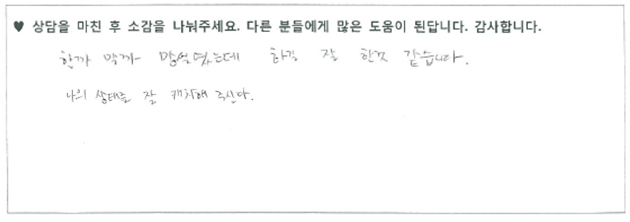 ♥ 상담을 마친 후 소감을 나눠주세요. 다른 분들에게 많은 도움이 된답니다. 감사합니다.
할까 말까 망설였는데 하길 잘 한것 같습니다.
나의 상태를 잘 캐치해 주신다.